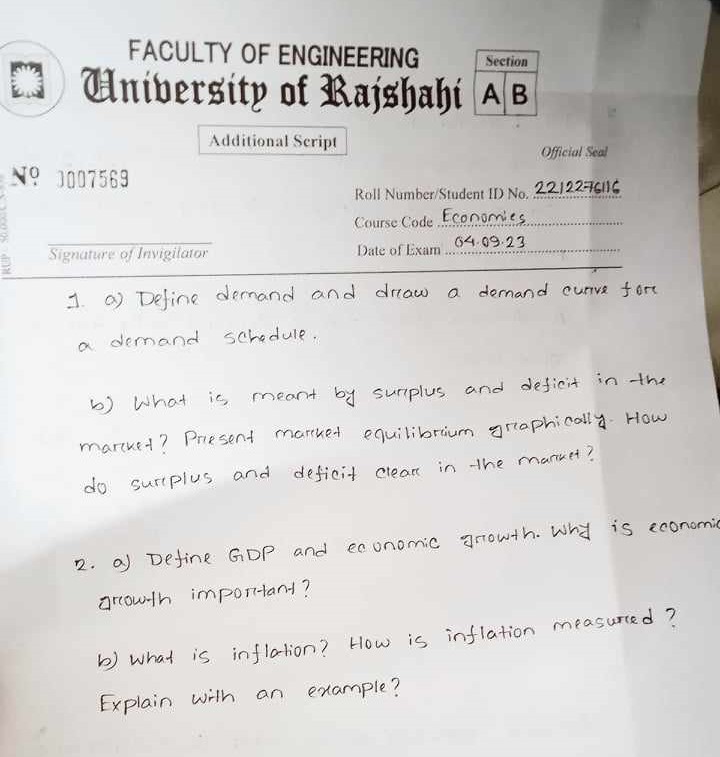 FACULTY OF ENGINEERING
University of Rajshahi
Section
A B
Additional Script
Official Seal
Nº 0007569
Roll Number/Student ID No. 2212276116
Course Code Economies
Signature of Invigilator
Date of Exam 04.09.23
1. a) Define demand and draw a demand curve for
a demand schedule.
b) What is meant by surplus and deficit in the
market? Present market equilibrium graphically. How
do surplus and deficit clear in the market?
2. a) Define GDP and economic growth. Why is economic
growth important?
b) What is inflation? How is inflation measured?
Explain with an example?